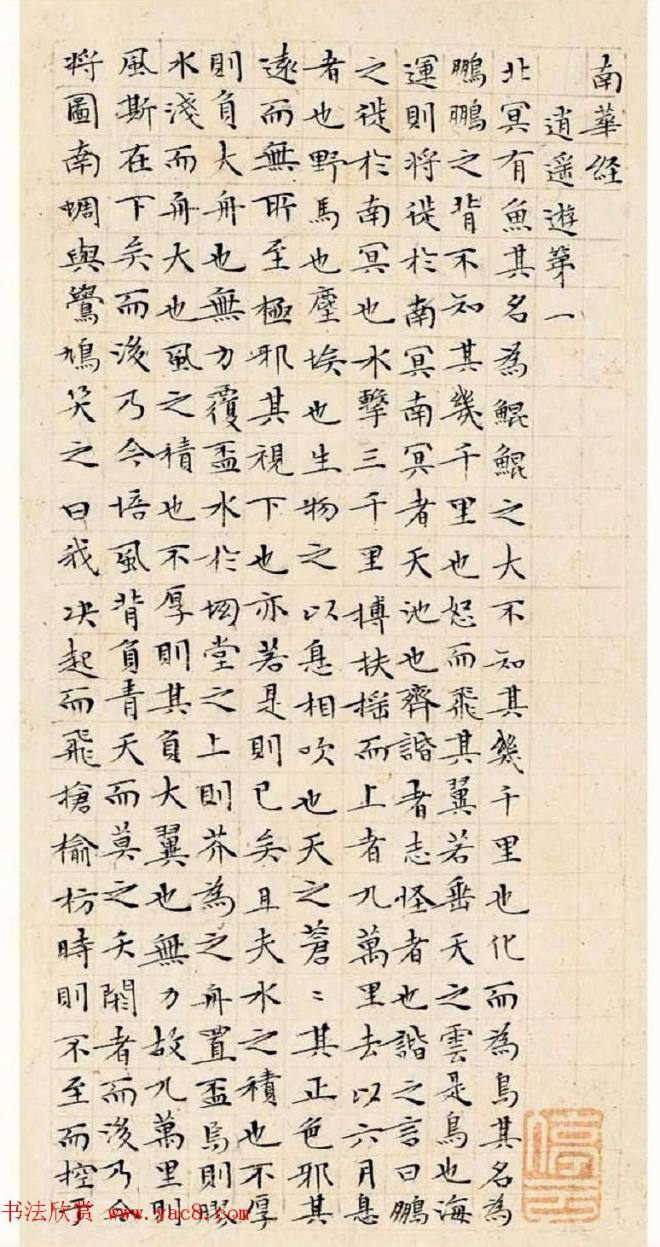 南華経
逍遥遊第一
北冥有魚其名為鯤鯤之大不知其幾千里也化而為鳥其名為
鵬鵬之背不知其幾千里也怒而飛其翼若垂天之雲是鳥也海
運則將徙於南冥南冥者天池也齊諧者志怪者也諧之言曰鵬
之徙於南冥也水擊三千里摶扶摇而上者九萬里去以六月息
者也野馬也塵埃也生物之以息相吹也天之蒼〻其正色邪其
遠而無所至極邪其視下也亦若是則已矣且夫水之積也不厚
則負大舟也無力覆盃水於坳堂之上則芥為之舟置盃焉則膠
水淺而舟大也風之積也不厚則其負大翼也無力故九萬里則
風斯在下矣而後乃今培風背負青天而莫之夭閼者而後乃今
將圖南蜩與鷽鳩笑之曰我决起而飛搶榆枋時則不至而控于
停云
书法欣赏 www.yac8.com